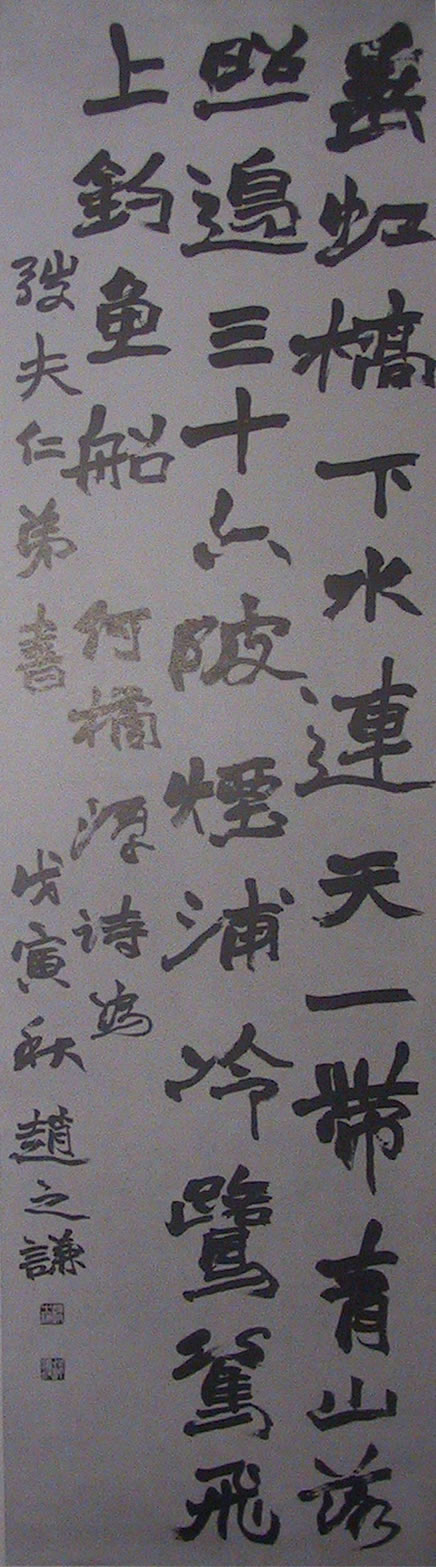 垂虹橋下水連天一帶青山落
照邊三十六陂煙浦冷鷺鴛飛
上釣魚船 何橘潭诗為
弢夫仁弟書 戊寅秋 趙之謙